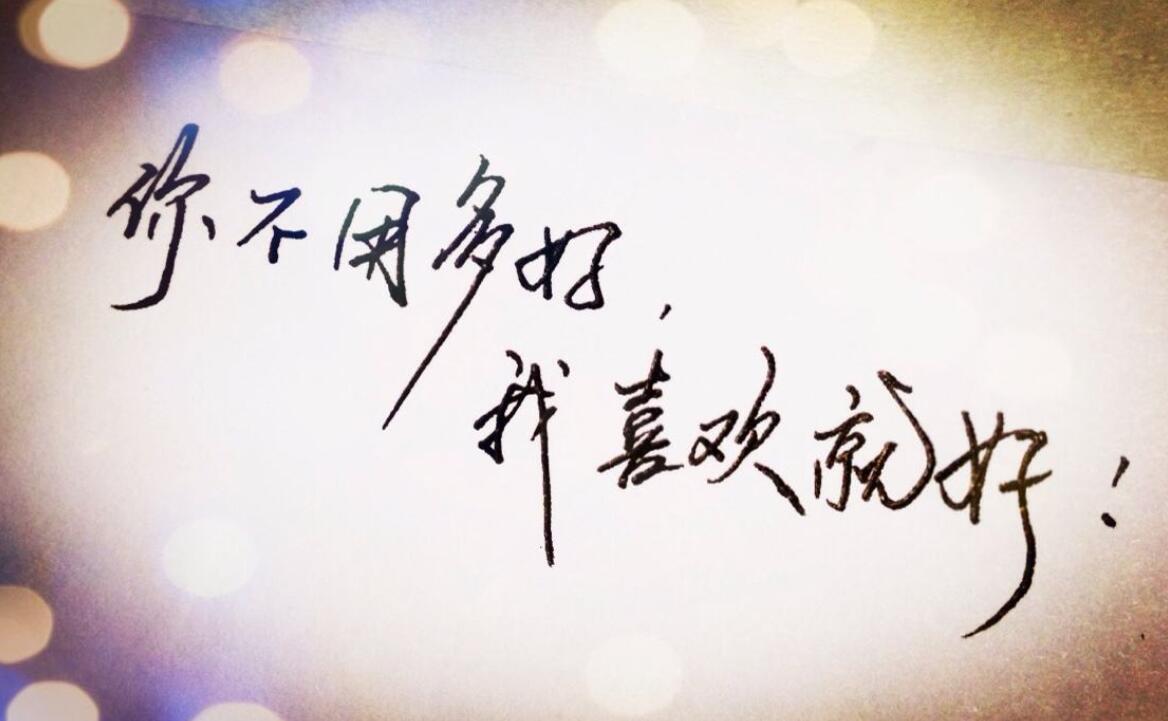 你不用多好,
我喜欢就好!